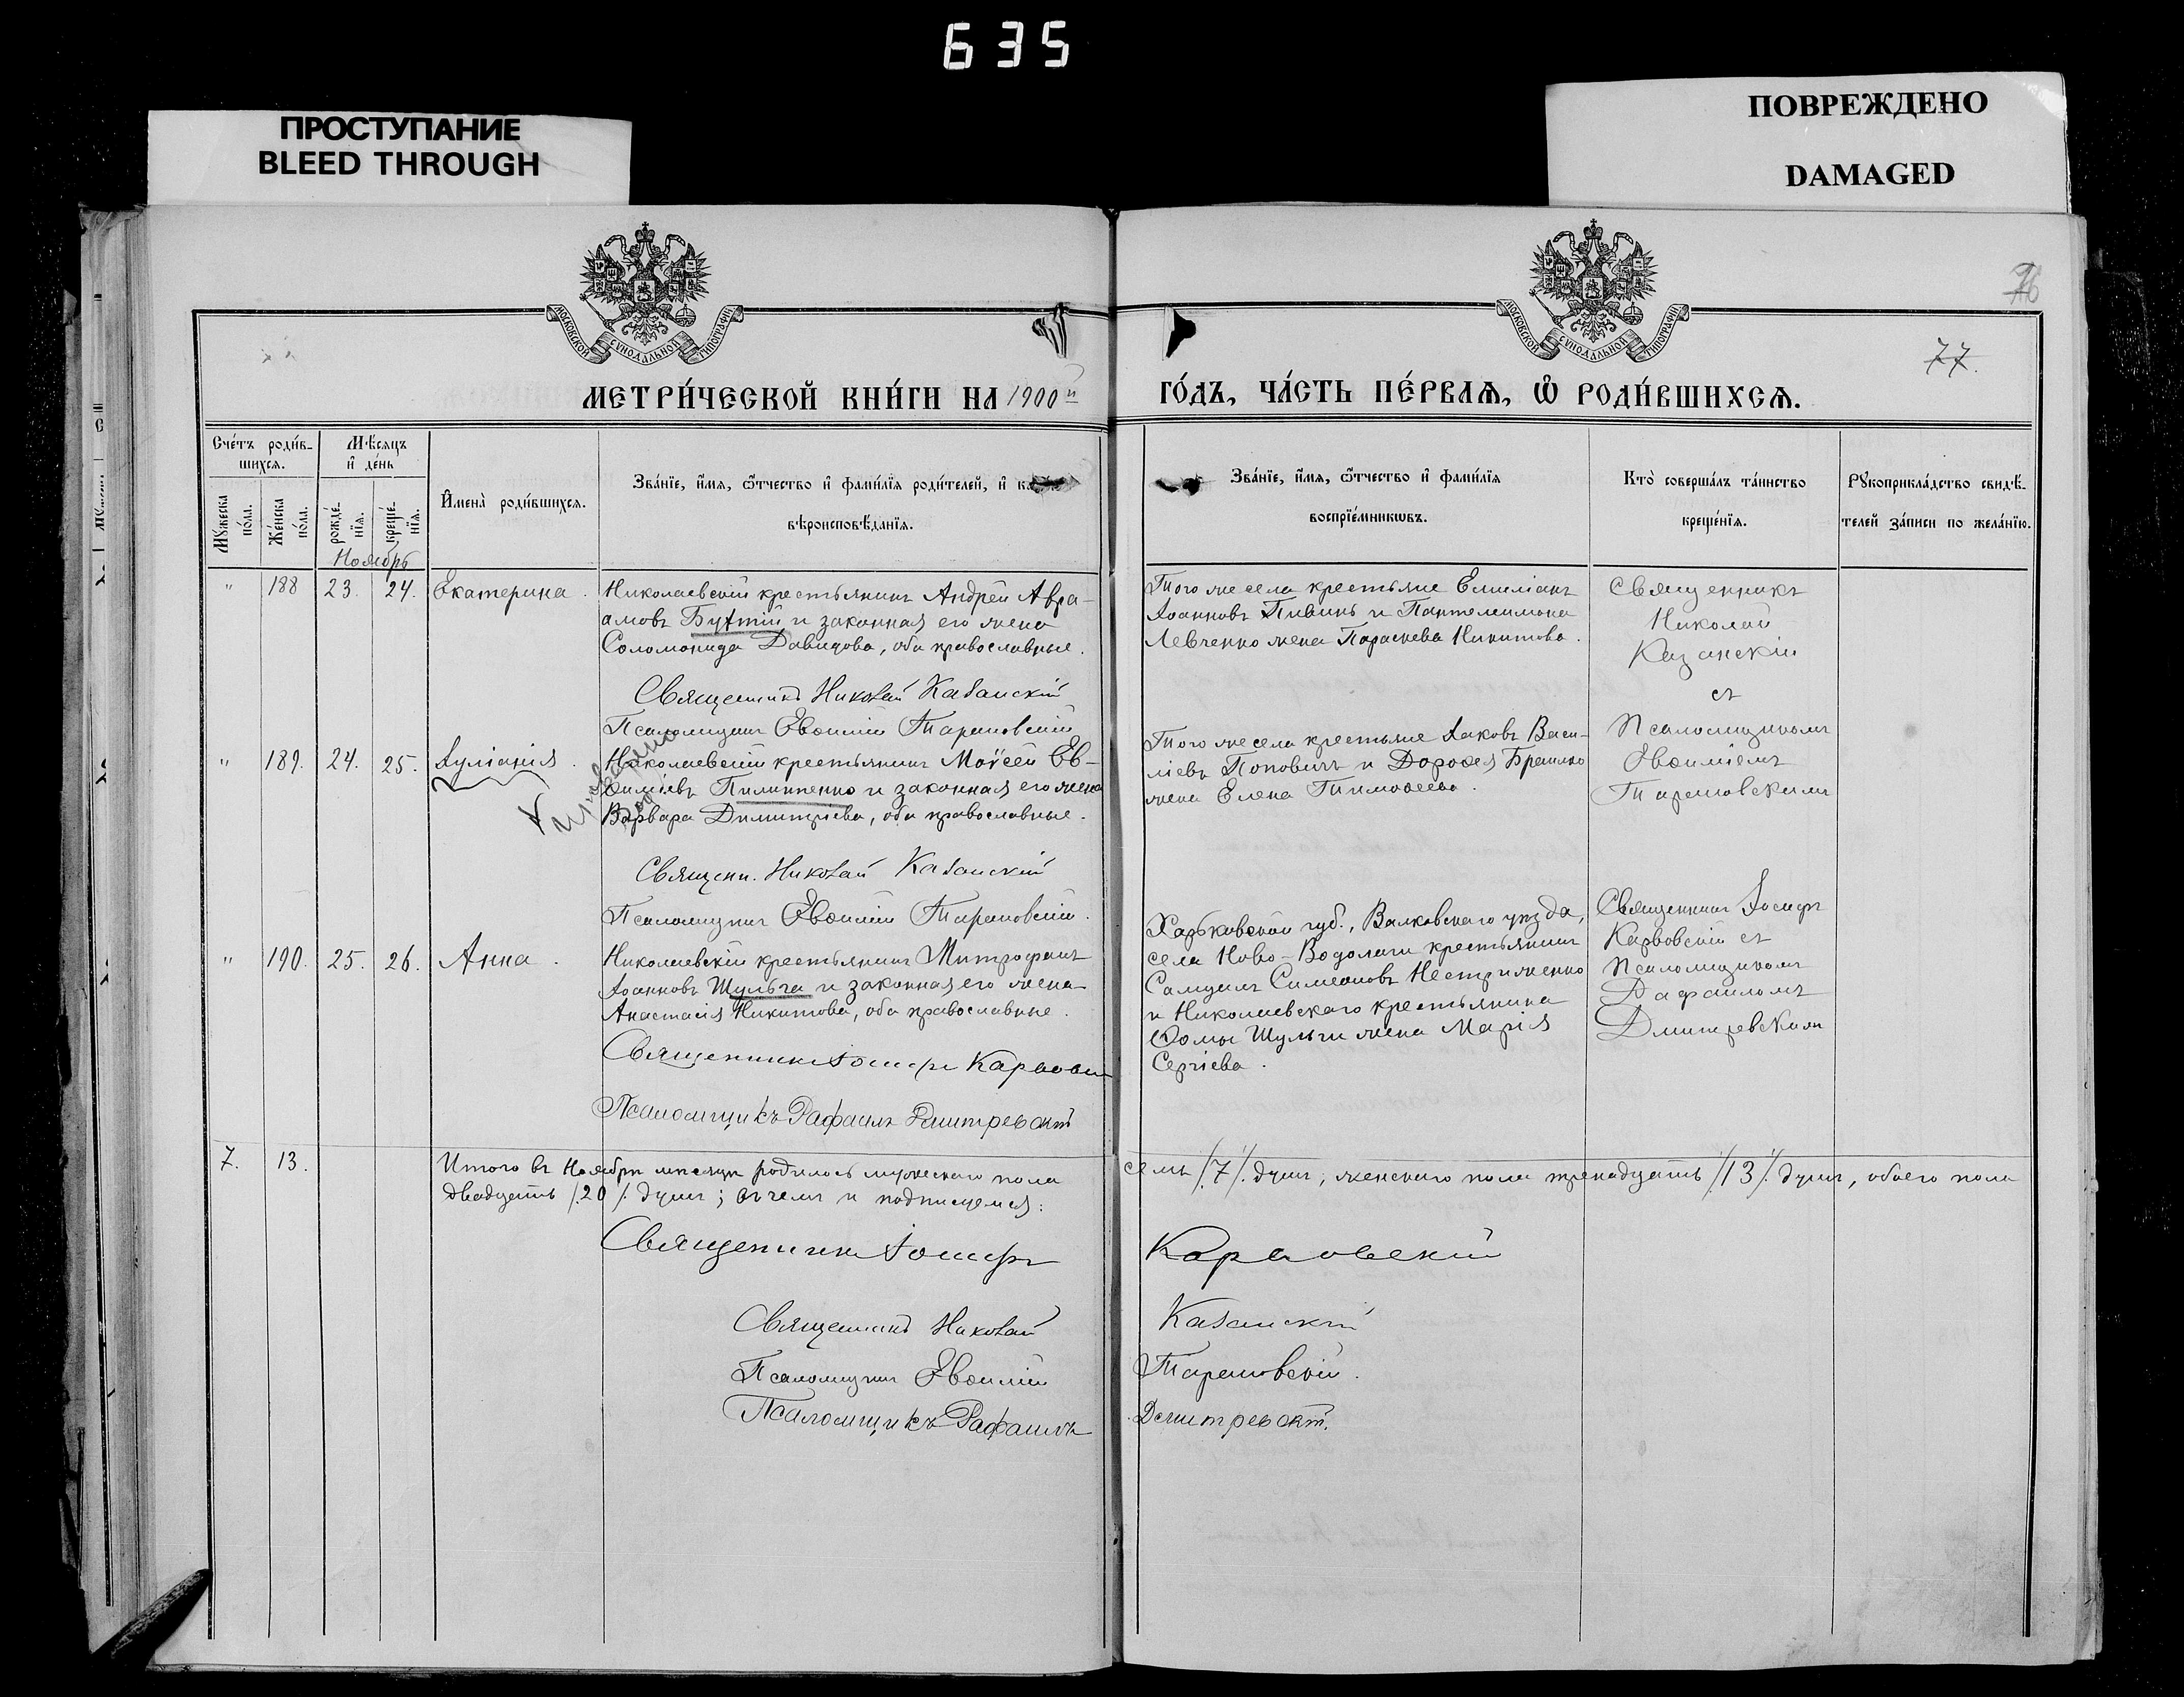 635
ПРОСТУПАНИЕ
BLEED THROUGH
ПОВРЕЖДЕНО
DAMAGED
МОСКОВСКОЙ СѴНОДАЛЬНОЙ ТИПОГРАФІИ
МОСКОВСКОЙ СѴНОДАЛЬНОЙ ТИПОГРАФІИ
76
77.
МЕТРИ́ЧЕСКОЙ КНИ́ГИ НА 1900й
ГО́ДЪ, ЧА́СТЬ ПЕ́РВАѦ, Ѽ РОДИ́ВШИХСѦ.
Сче́тъ роди́в-
шихсѧ.
Мѣ́сѧцъ
и҆ де́нь
Мꙋ́жеска
по́ла.
Же́нска
по́ла.
рожде́-
нїѧ.
креще́-
нїѧ.
И҆мена̀ роди́вшихсѧ.
Зва́нїе, и҆́мѧ, ѻ҆́тчество и҆ фами́лїѧ роди́телей, и҆
вѣроисповѣ́данїѧ.
Зва́нїе, и҆́мѧ, ѻ҆́тчество и҆ фами́лїѧ
воспрїе́мникѡвъ.
Кто̀ соверша́лъ та́инство
креще́нїѧ.
Рꙋкоприкла́дство свидѣ́-
телей за́писи по жела́нїю.
Ноябрь
" 188 23. 24. Екатерина.
Николаевскій крестьянинъ Андрей Авра-
амовъ Бухтій и законная его жена
Соломонида Давидова, оба православные.
Священникъ Николай Казанскій
Псаломщикъ Евѳимій Тарановскій
Того же села крестьяне Емиліанъ
Іоанновъ Пивинь и Пантелеимона
Левченко жена Параскева Никитова.
Священникъ
Николай
Казанскій
съ
Псаломщикомъ
Евѳиміемъ
Тарановскимъ
" 189. 24. 25. Іуліанія.
Николаевскій крестьянинъ Моѵсей Ев-
ѳиміевъ Пилипенко и законная его жена
Варвара Димитріева, оба православные.
Священн. Николай Казанскій
Псаломщикъ Евѳимій Тарановскій.
Того же села крестьяне Іаковъ Васи-
ліевъ Поповичъ и Дороѳея Браилко
жена Елена Тимоѳеева.
" 190. 25. 26. Анна.
Николаевскій крестьянинъ Митрофанъ
Іоанновъ Шульга и законная его жена
Анастасія Никитова, оба православные.
Священникъ Іосифъ Карповскій
Псаломщикъ Рафаилъ Дмитревскій
Харьковской губ., Валковскаго уѣзда,
села Ново-Водолаги крестьянинъ
Самуилъ Симеоновъ Нестриженко
и Николаевскаго крестьянина
Ѳомы Шульги жена Марія
Сергіева.
Священникъ Іосифъ
Карповскій съ
Псаломщикомъ
Рафаиломъ
Дмитревскимъ
7. 13.
Итого въ Ноябрѣ мѣсяцѣ родилось мужескаго пола семь /7/ душъ, женскаго пола тринадцать /13/ душъ, обоего пола
двадцать /20/ душъ; въ чемъ и подписуемся:
Священникъ Іосифъ Карповскій
Священникъ Николай Казанскій
Псаломщикъ Евѳимій Тарановскій.
Псаломщикъ Рафаилъ Дмитревскій.